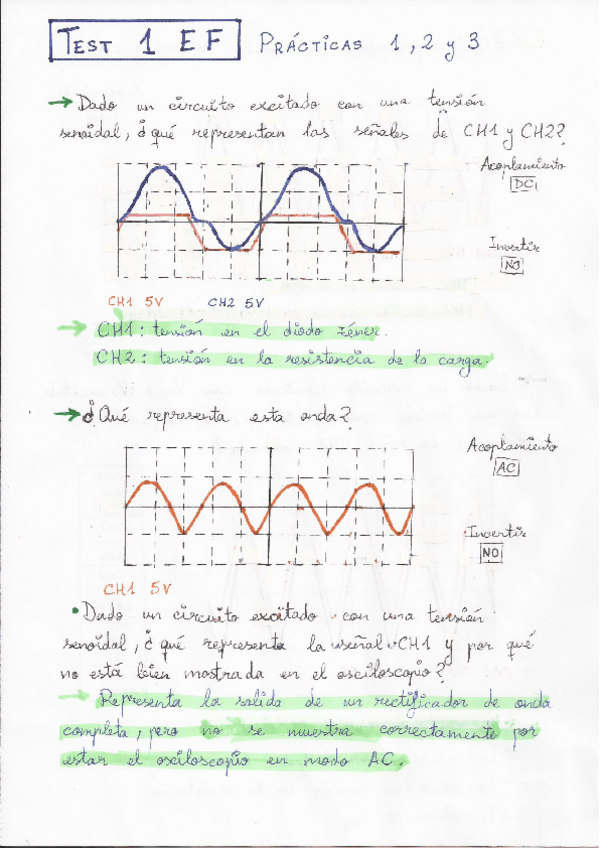 TEST 1 EF PRÁCTICAS 1, 2 y 3
→ Dado un circuito excitado con una tensión
senoidal, ¿qué representan las señales de CH1 y CH2?
Acoplamiento
DC
Invertir
NO
CH1 5V CH2 5V
→ CH1: tensión en el diodo zéner.
CH2: tensión en la resistencia de la carga.
→ ¿Qué representa esta onda?
Acoplamiento
AC
Invertir
NO
CH1 5V
• Dado un circuito excitado con una tensión
senoidal, ¿qué representa la señal CH1 y por qué
no está bien mostrada en el osciloscopio?
→ Representa la salida de un rectificador de onda
completa, pero no se muestra correctamente por
estar el osciloscopio en modo AC.